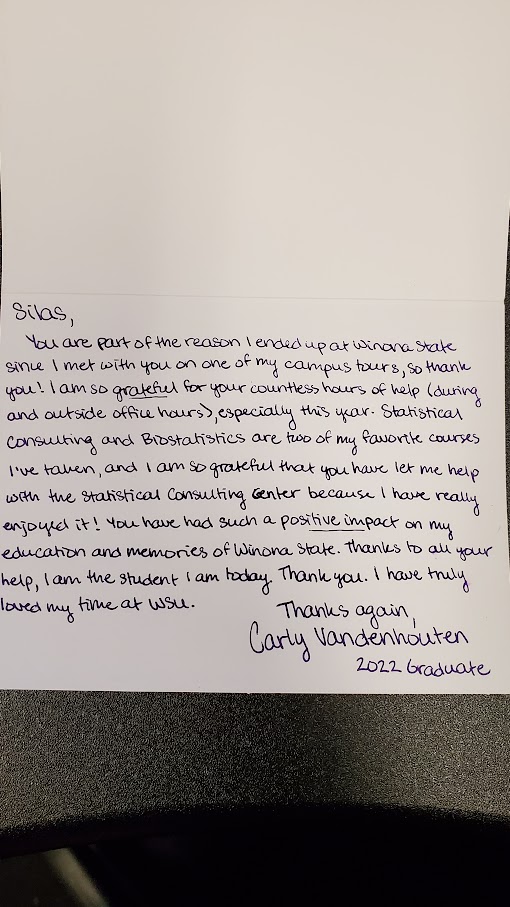 Silas,
You are part of the reason I ended up at Winona State
since I met with you on one of my campus tours, so thank
you! I am so grateful for your countless hours of help (during
and outside office hours), especially this year. Statistical
Consulting and Biostatistics are two of my favorite courses
I've taken, and I am so grateful that you have let me help
with the Statistical Consulting Center because I have really
enjoyed it! You have had such a positive impact on my
education and memories of Winona State. Thanks to all your
help, I am the student I am today. Thank you. I have truly
loved my time at WSU.
Thanks again,
Carly Vandenhouten
2022 Graduate